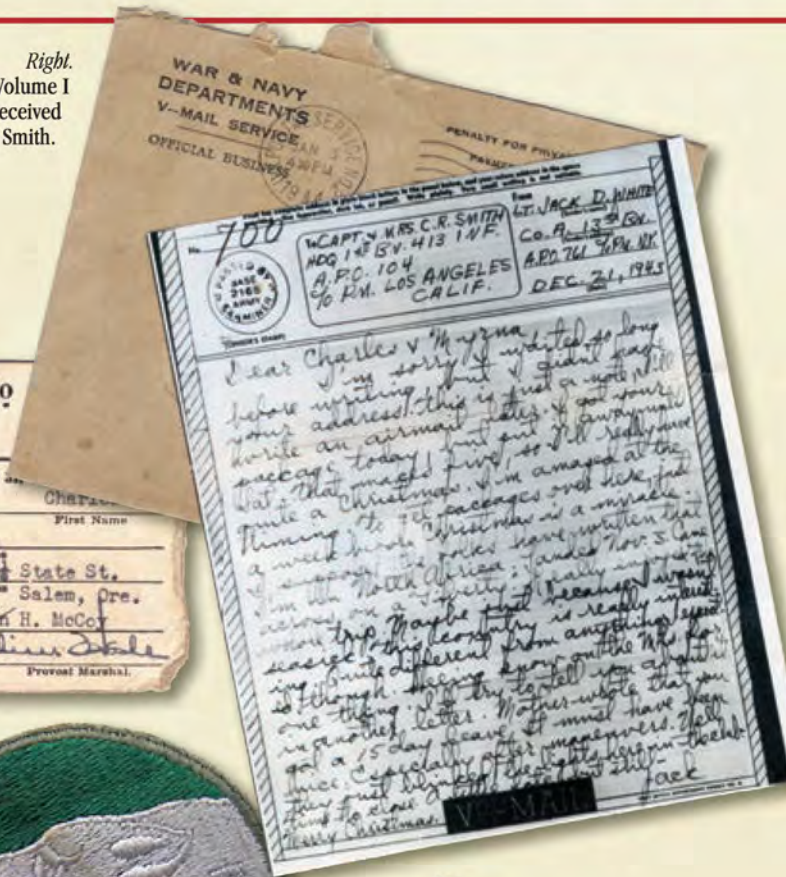 Right.
Volume I
eceived
Smith.
WAR & NAVY
DEPARTMENTS
V--MAIL SERVICE
OFFICIAL BUSINESS
PENALTY FOR PRIVA
No. 100
To CAPT. & MRS. C.R. SMITH
HDQ 1ST BN. 413 INF.
A.P.O. 104
% P.M. LOS ANGELES
CALIF.
From
LT. JACK D. WHITE
CO. A. 13TH BN.
A.P.O. 761 % P.M. NY.
DEC. 21, 1943
BASE
ARMY
EXAMINER
Dear Charles & Myrna
I'm sorry I waited so long
before writing but I didn't have
your address. This is just a note, I'll
write an airmail later. I got your
package today but put it away until
Sat. That makes five, so I'll really have
quite a Christmas. I'm amazed at the
timing. To get packages over here just
a week before Christmas is a miracle.
I suppose the folks have written that
I'm in North Africa. Landed Nov. 3. Came
across on a Liberty. I really enjoyed the
whole trip. Maybe just because I wasn't
seasick. This country is really interest-
ing. Quite different from anything I expect-
ed though. Seeing snow on the Mts. for
one thing. I'll try to tell you about it
in another letter. Mother wrote that you
got a 15 day leave. It must have been
nice especially after maneuvers. Well
they just blinked the lights here in the club
time to close
Merry Christmas.
Jack
V···—MAIL
Charle
First Name
State St.
Salem, Ore.
H. McCoy
Provost Marshal.